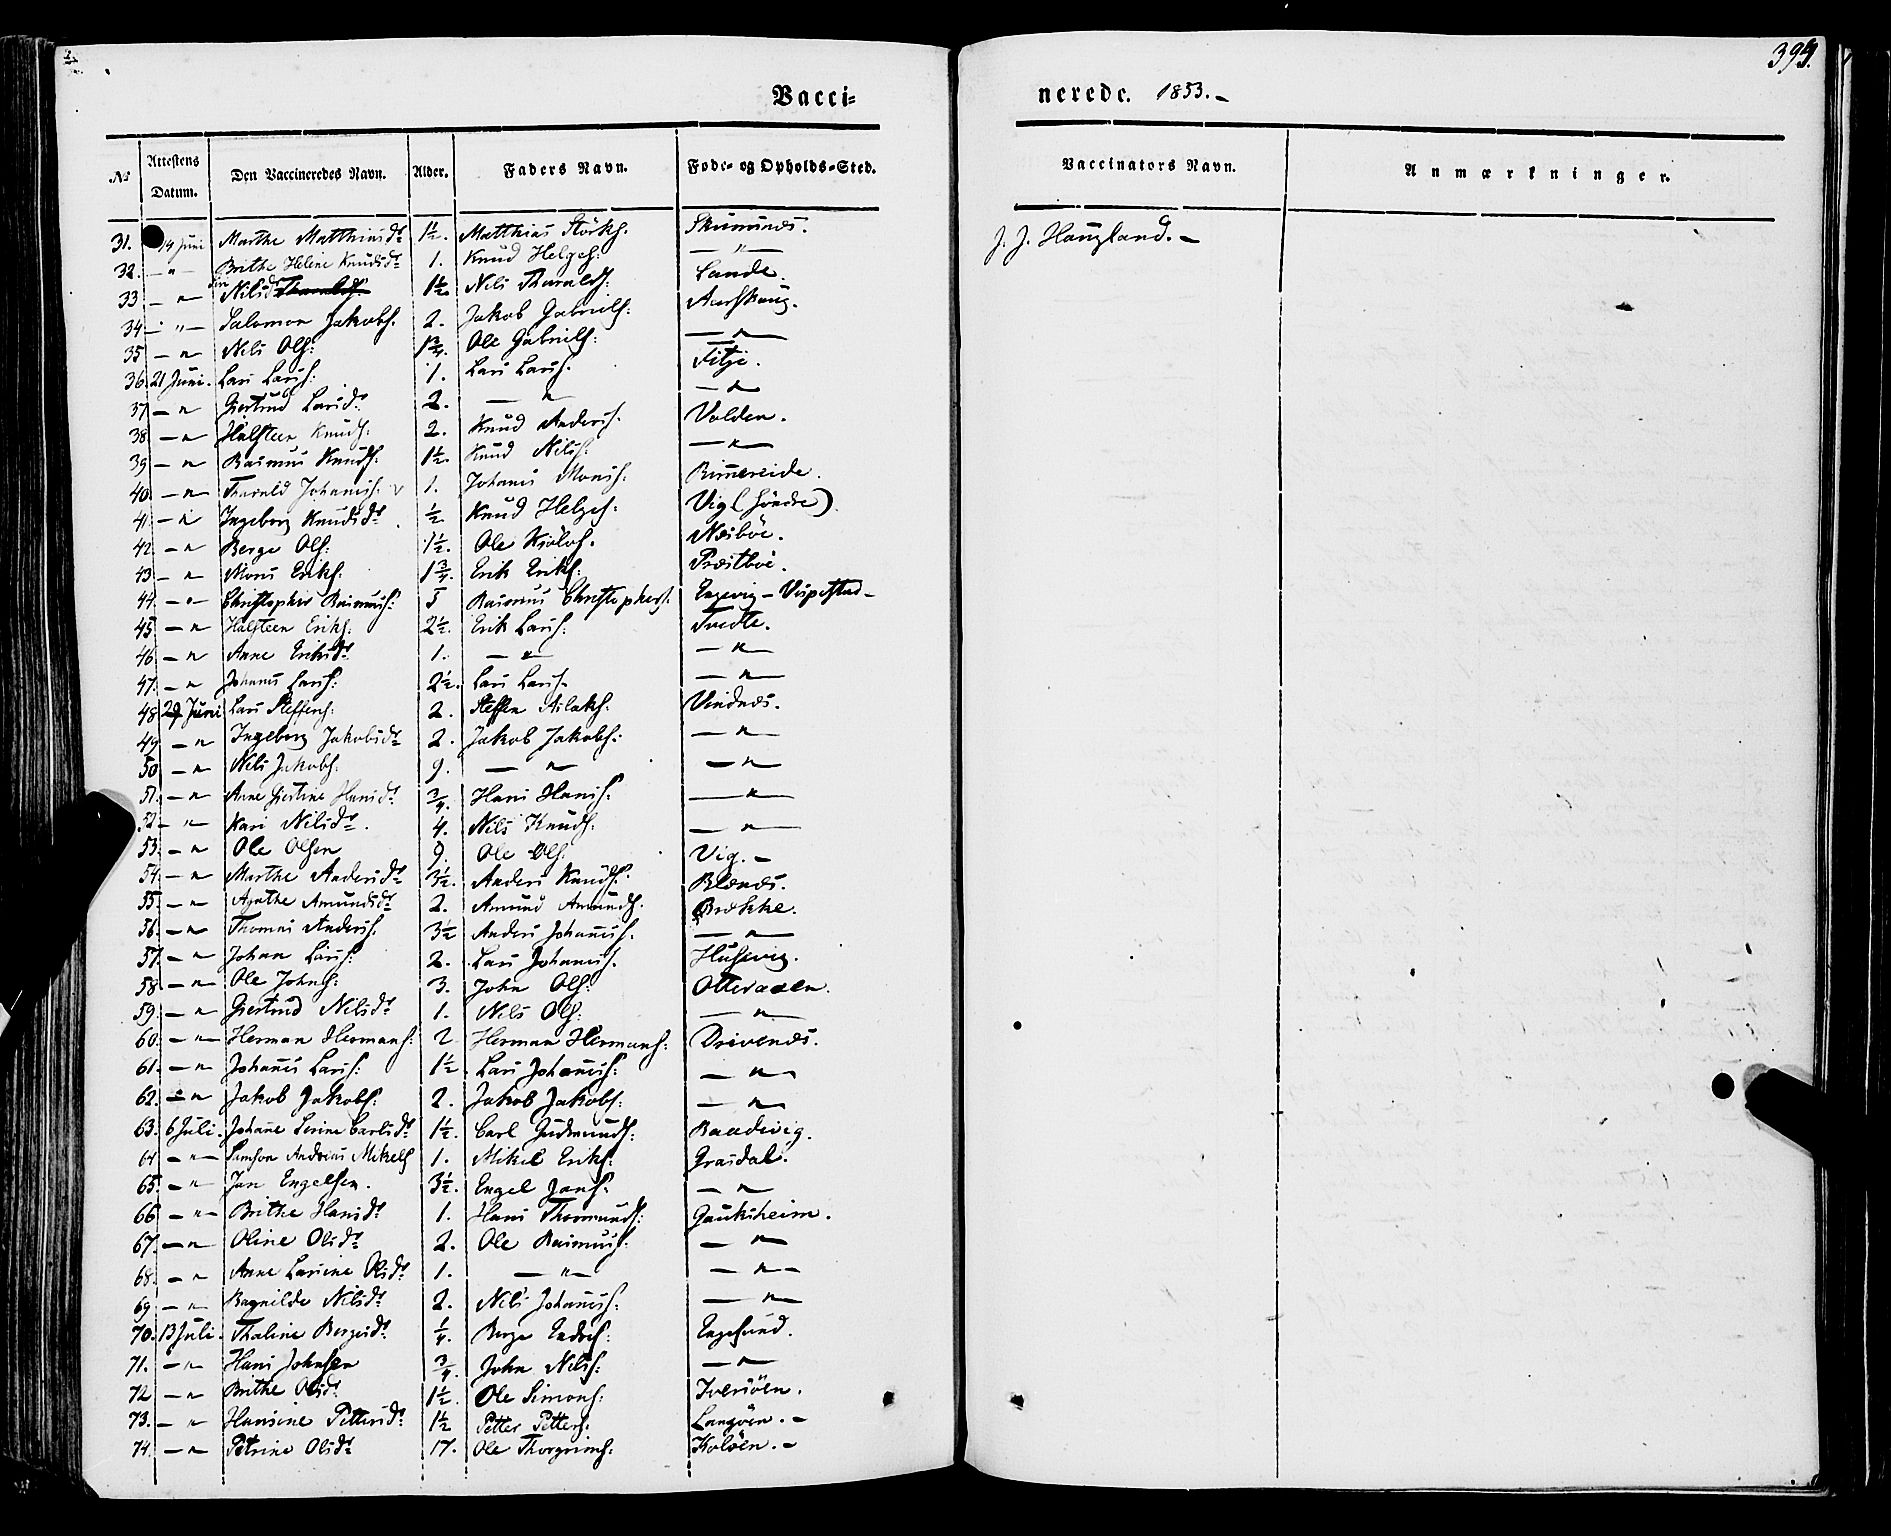 Vacci= nerede. 1853.
No Attestens Datum. Den Vaccineredes Navn. Alder. Faders Navn. Føde- og Opholds-Sted. Vaccinators Navn. Anmærkninger.
31. 14 Juni Marthe Matthiasdr 1½. Matthias Störks. J. J. Haugland. -
32. - " - Brithe Helene Knudsdr 1. Knud Helges: - " -
33 - " Nilsdr 1½ Nils Tharalds: Lande.
34 - " - Salomon Jakobs. 2. Jakob Gabriels: Aarskoug.
35 - " Nils Ols: 1¾. Ole Gabriels: - " -
36. 21 Juni. Lars Lars: 1. Lars Lars. Fitje.
37 - " Giertrud Larsdr 2. - " - " -
38 - " Halsteen Knuds: 2. Knud Anders. Valden.
39 - " Rasmus Knuds: 1½. Knud Nils: - " -
40 - " Tharald Johannes. 1. Johannes Mons. Rimereide.
41 - " Ingeborg Knudsdr ½ Knud Helges: Vig (söndre)
42. - " Berge Ols: 1½. Ole Kiölvs. Næsböe.
43 - " Mons Eriks: 1¾. Erik Eriks: Præstböe.
44. - " Christopher Rasmus: 5 Rasmus Christophers. Engevig - Vispestad -
45 - " Halsteen Eriks: 2½. Erik Lars: Tvedte.
46 - " Anne Eriksdr 1. - " - " -
47. - " Johannes Lars: 2½. Lars Lars. - " -
48 29 Juni Lars Steffens: 2. Steffen Aslaks: Vindnæs.
49 - " Ingeborg Jakobsdr 2. Jakob Jakobs: - " -
50 - " Nils Jakobs: 9. - " - " -
51. - " Anne Giertine Hansdr ¾. Hans Hans: - " -
52 - " Kari Nilsdr. 4. Nils Knuds: - " -
53. - " Ole Olsen 9. Ole Ols. Vig. -
54. - " Marthe Andersdr 3½. Anders Knuds: Blænæs.
55. - " Agathe Amundsdr 2. Amund Amunds. Brække.
56. - " Thomas Anders. 3½ Anders Johannes. - " -
57. - " Johan Lars: 2. Lars Johannes. Husevig.
58. - " Ole Johns: 3. John Ols: Otteraaen.
59. - " Giertrud Nilsdr 1. Nils Ols: - " -
60. - " - Herman Hermans: 2 Herman Hermans: Drivenæs.
61. - " Johannes Lars: 1½ Lars Johannes: - " -
62. - " Jakob Jakobs: 2. Jakob Jakobs: - " -
63. 6 Juli. Johanne Serine Carlsdr 1½. Carl Gudmunds: Raadevig.
64 - " - Samson Andreas Mikels 1. Mikel Eriks: Grasdal.
65. - " Jan Engelsen. 3½. Engel Jans: - " -
66 - " - Brithe Hansdr 1. Hans Thormunds: Gauksheim.
67. - " Oline Olsdr 2. Ole Rasmus: - " -
68. - " Anne Larsine Olsdr 1. - " - - " -
69 - " Ragnilde Nilsdr 2. Nils Johannes: - " -
70. 13 Juli. Thaline Bergesdr ¼. Berge Endres: Engesund.
71. - " Hans Johnsen ¾. John Nils: - " -
72 - " Brithe Olsdr 1½. Ole Simons: Iversöen.
73. - " Hansine Pettersdr 1½ Petter Petters: Langöen. -
74. - " Petrine Olsdr 17. Ole Thorgrims: Kolöen. -